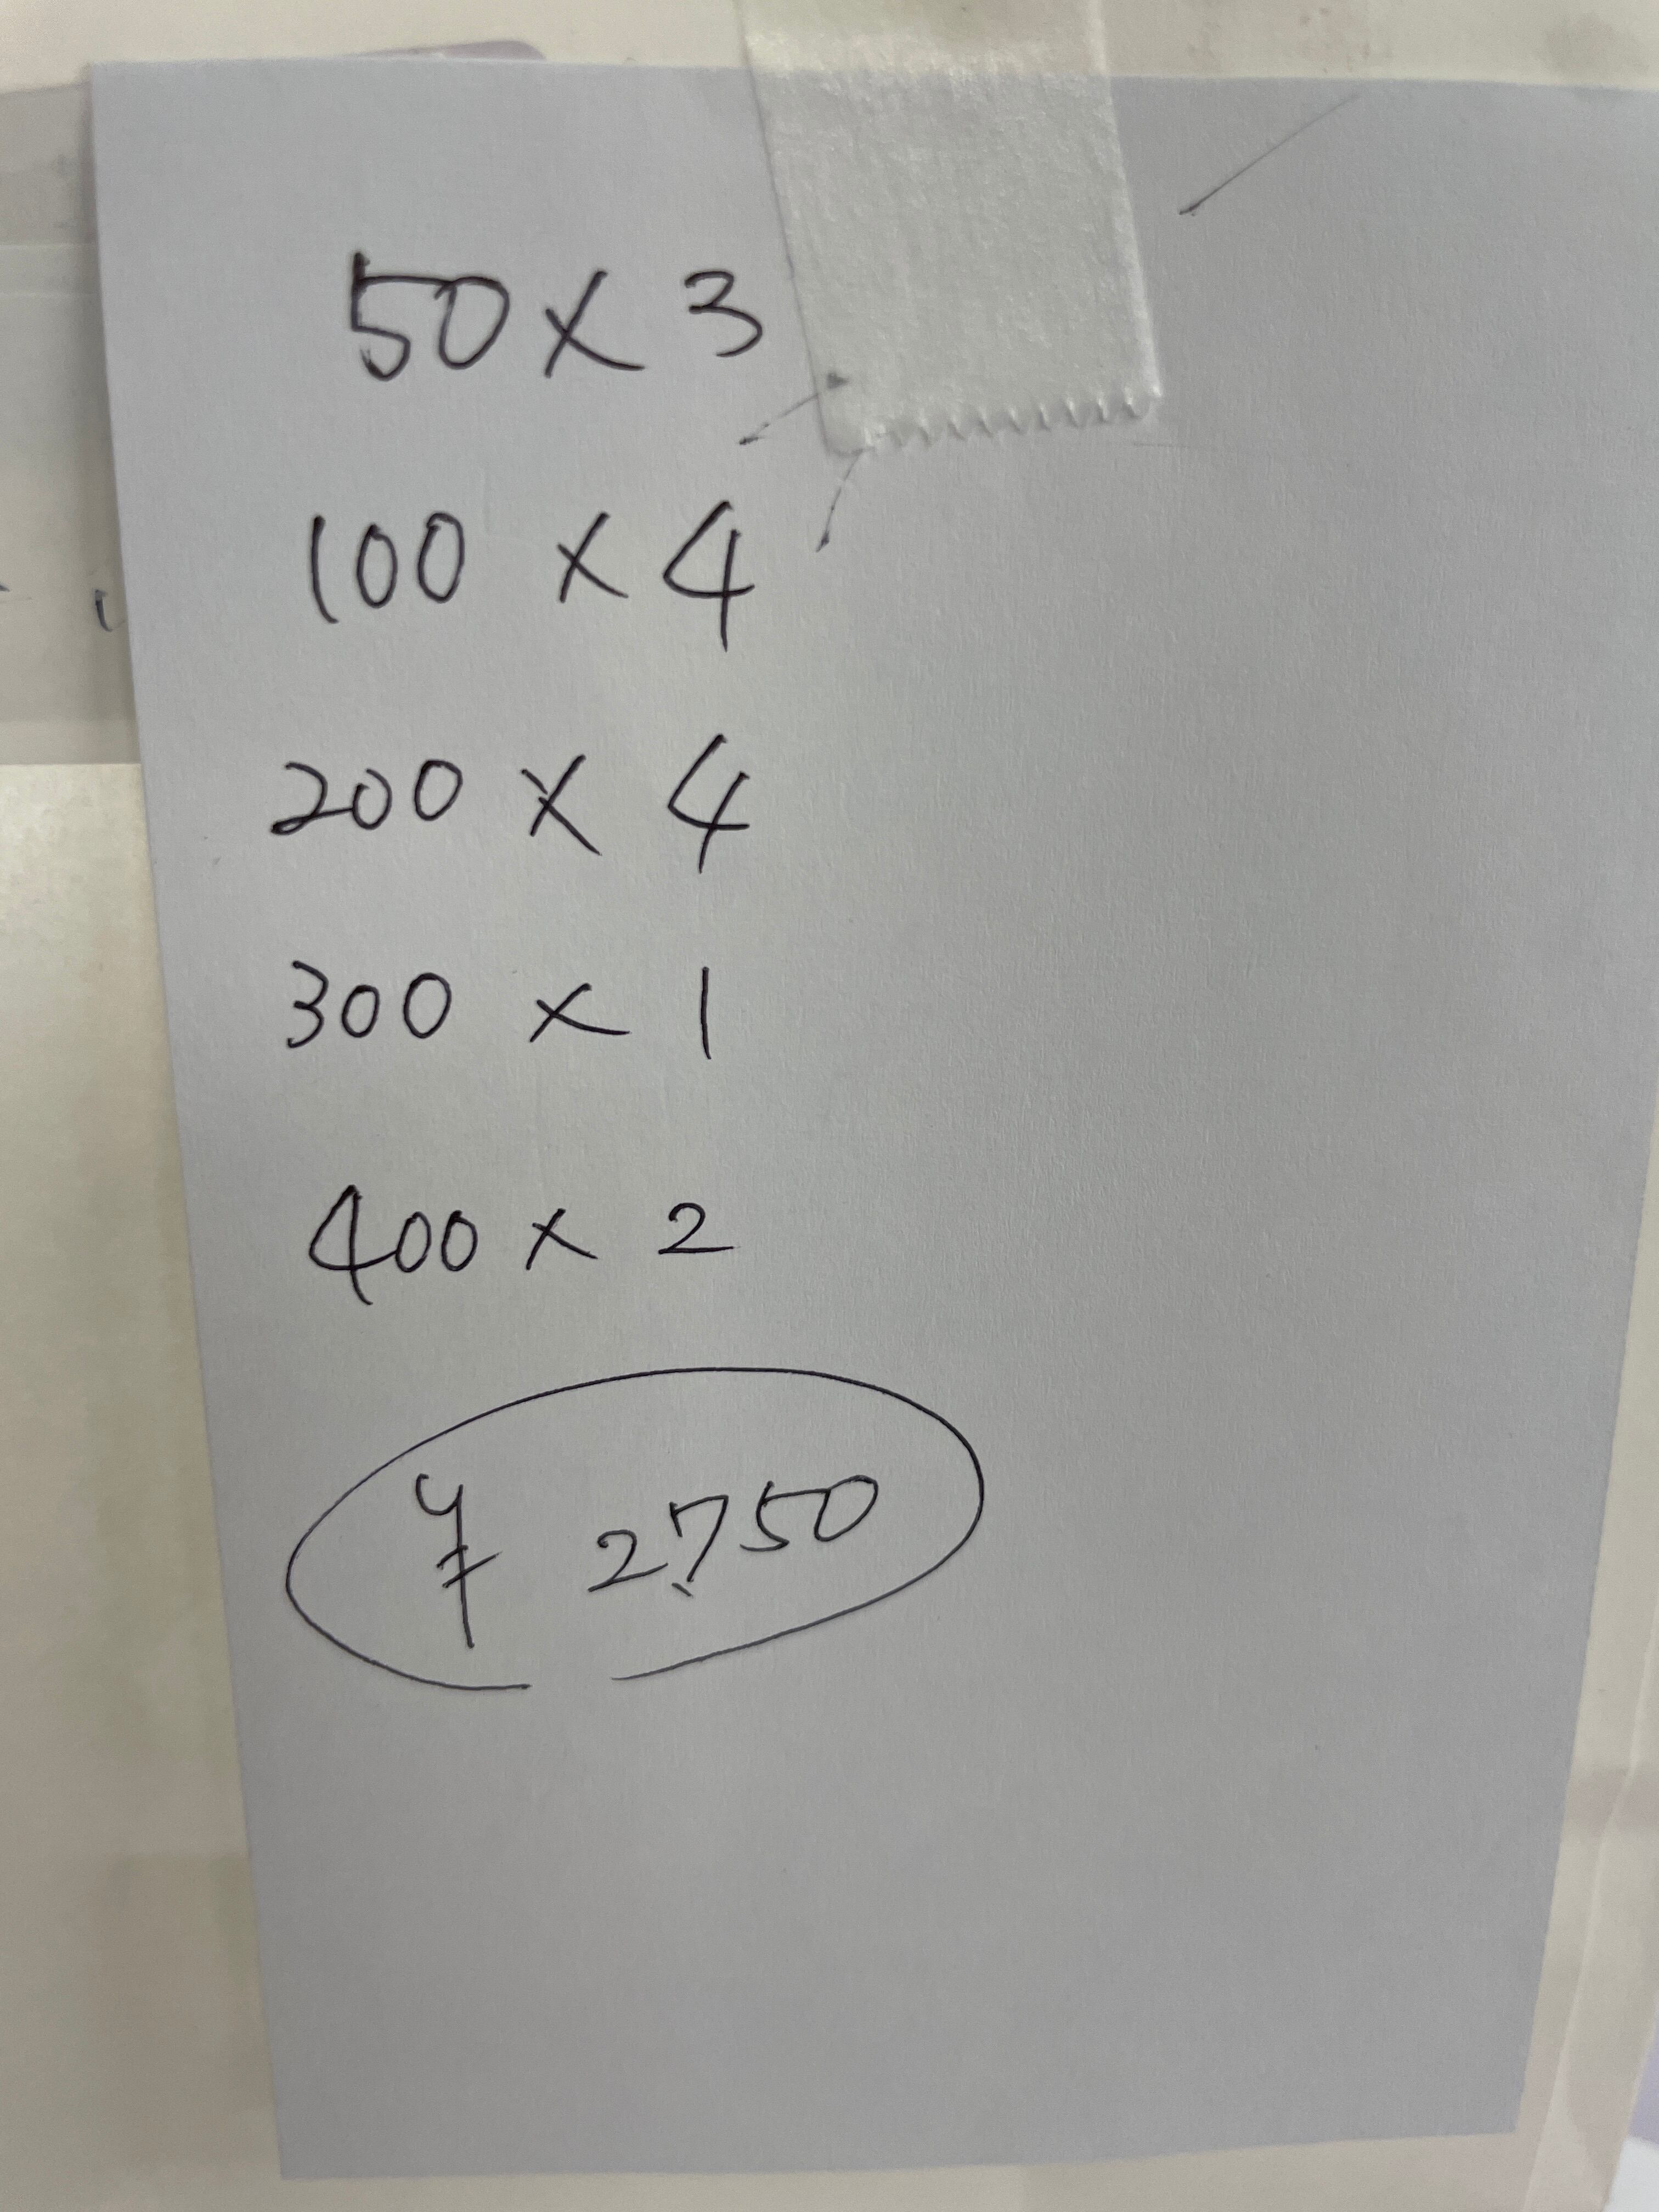 50 × 3
100 × 4
200 × 4
300 × 1
400 × 2
¥ 2,750